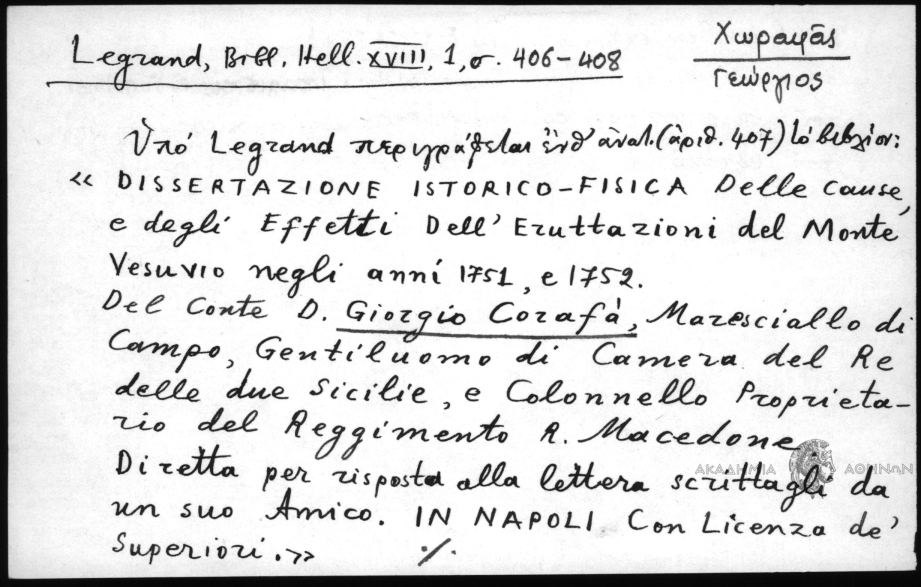 Legrand, Bibl. Hell. XVIII, 1, σ. 406-408
Χωραφᾶς
Γεώργιος
Ὑπό Legrand περιγράφεται ἐνθ' ἀνωτ. (ἀριθ. 407) τό βιβλίον:
« DISSERTAZIONE ISTORICO-FISICA Delle cause,
e degli Effetti Dell' Eruttazioni del Monte
Vesuvio negli anni 1751, e 1752.
Del Conte D. Giorgio Corafà, Maresciallo di
Campo, Gentiluomo di Camera del Re
delle due Sicilie, e Colonnello Proprieta-
rio del Reggimento R. Macedone.
Diretta per risposta alla lettera scrittagli da
un suo Amico. IN NAPOLI Con Licenza de'
Superiori.»
./.
ΑΚΑΔΗΜΙΑ ΑΘΗΝΩΝ